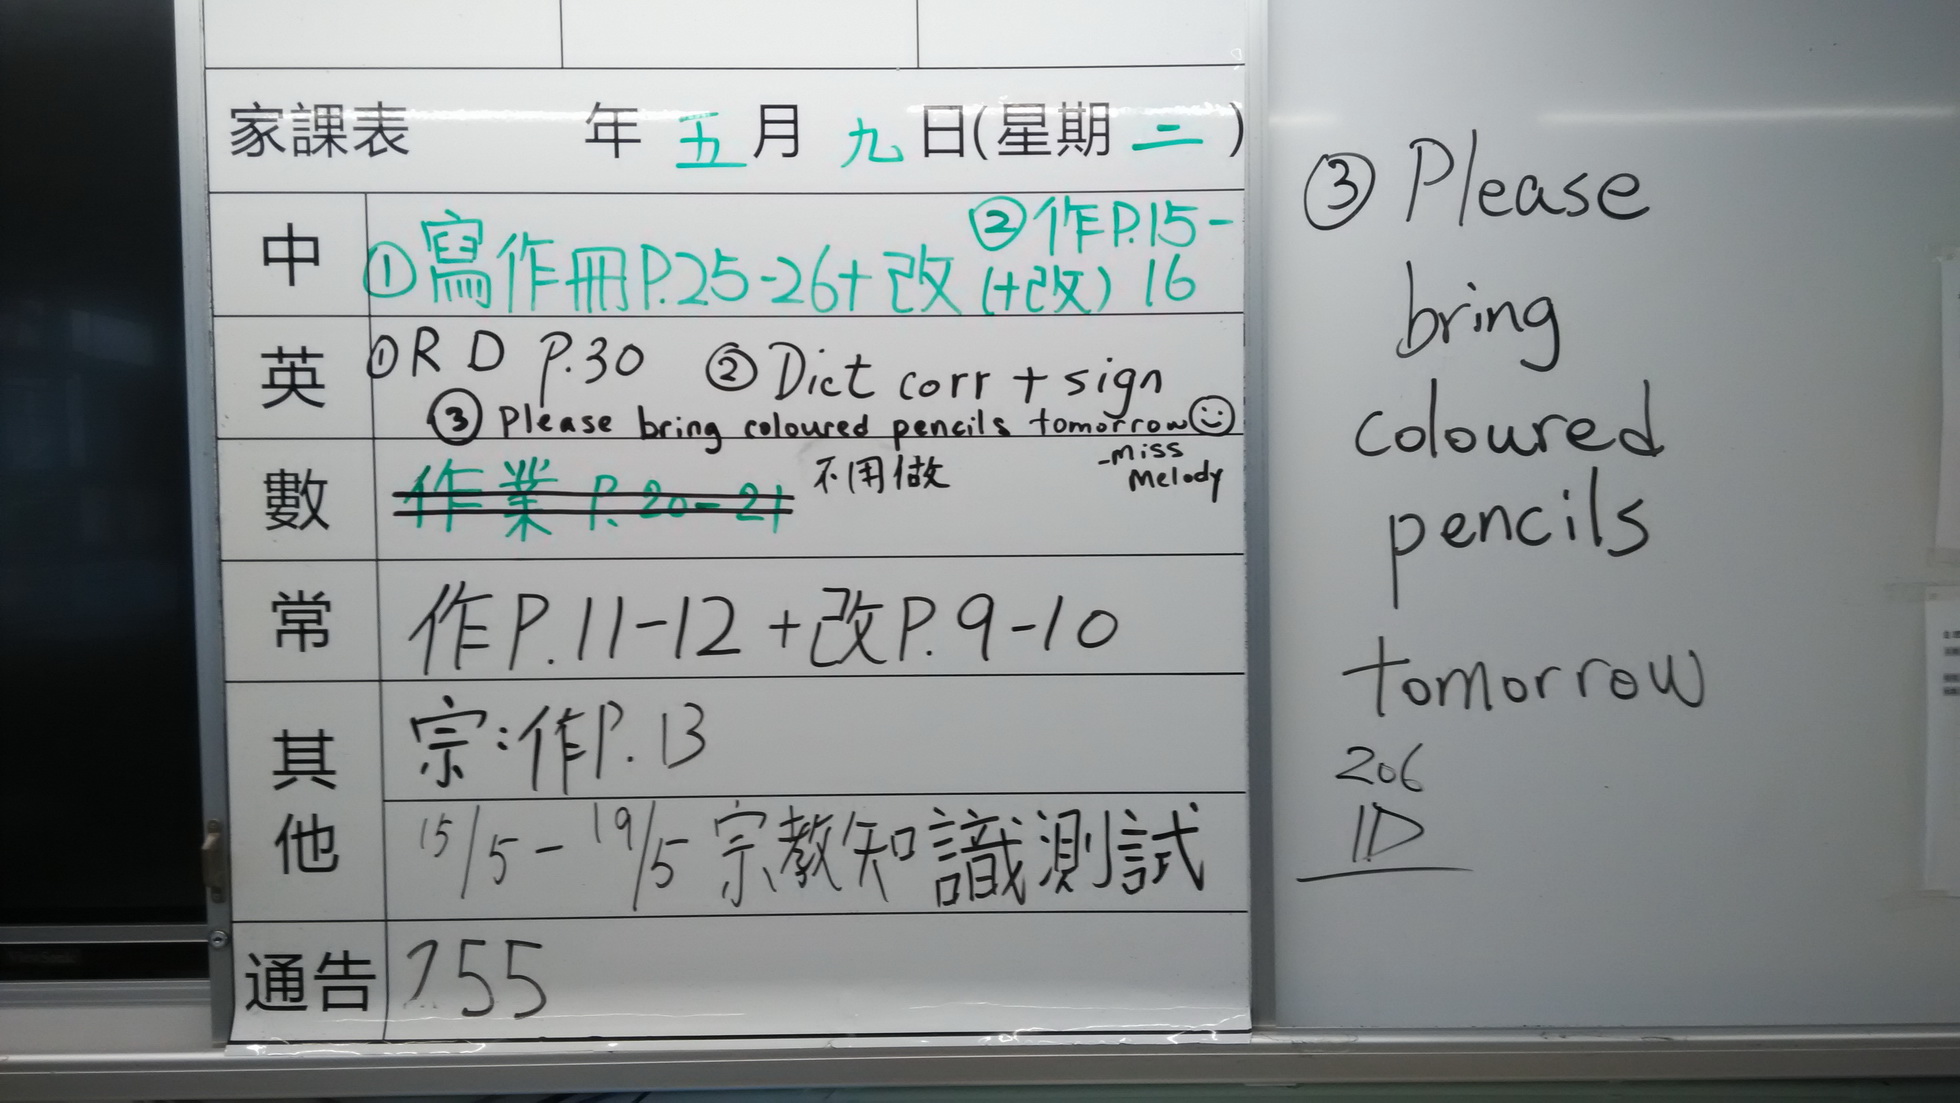 家課表 年 五 月 九 日(星期 二 )
中 ①寫作冊P.25-26+改 ②作P.15-16 (+改)
英 ①R D P.30 ②Dict corr + sign
③ Please bring coloured pencils tomorrow☺
-Miss Melody
數 作業 P. 20-21 不用做
常 作P.11-12 +改P.9-10
其他 宗:作P.13
15/5-19/5 宗教知識測試
通告 255
③ Please
bring
coloured
pencils
tomorrow
206
1D